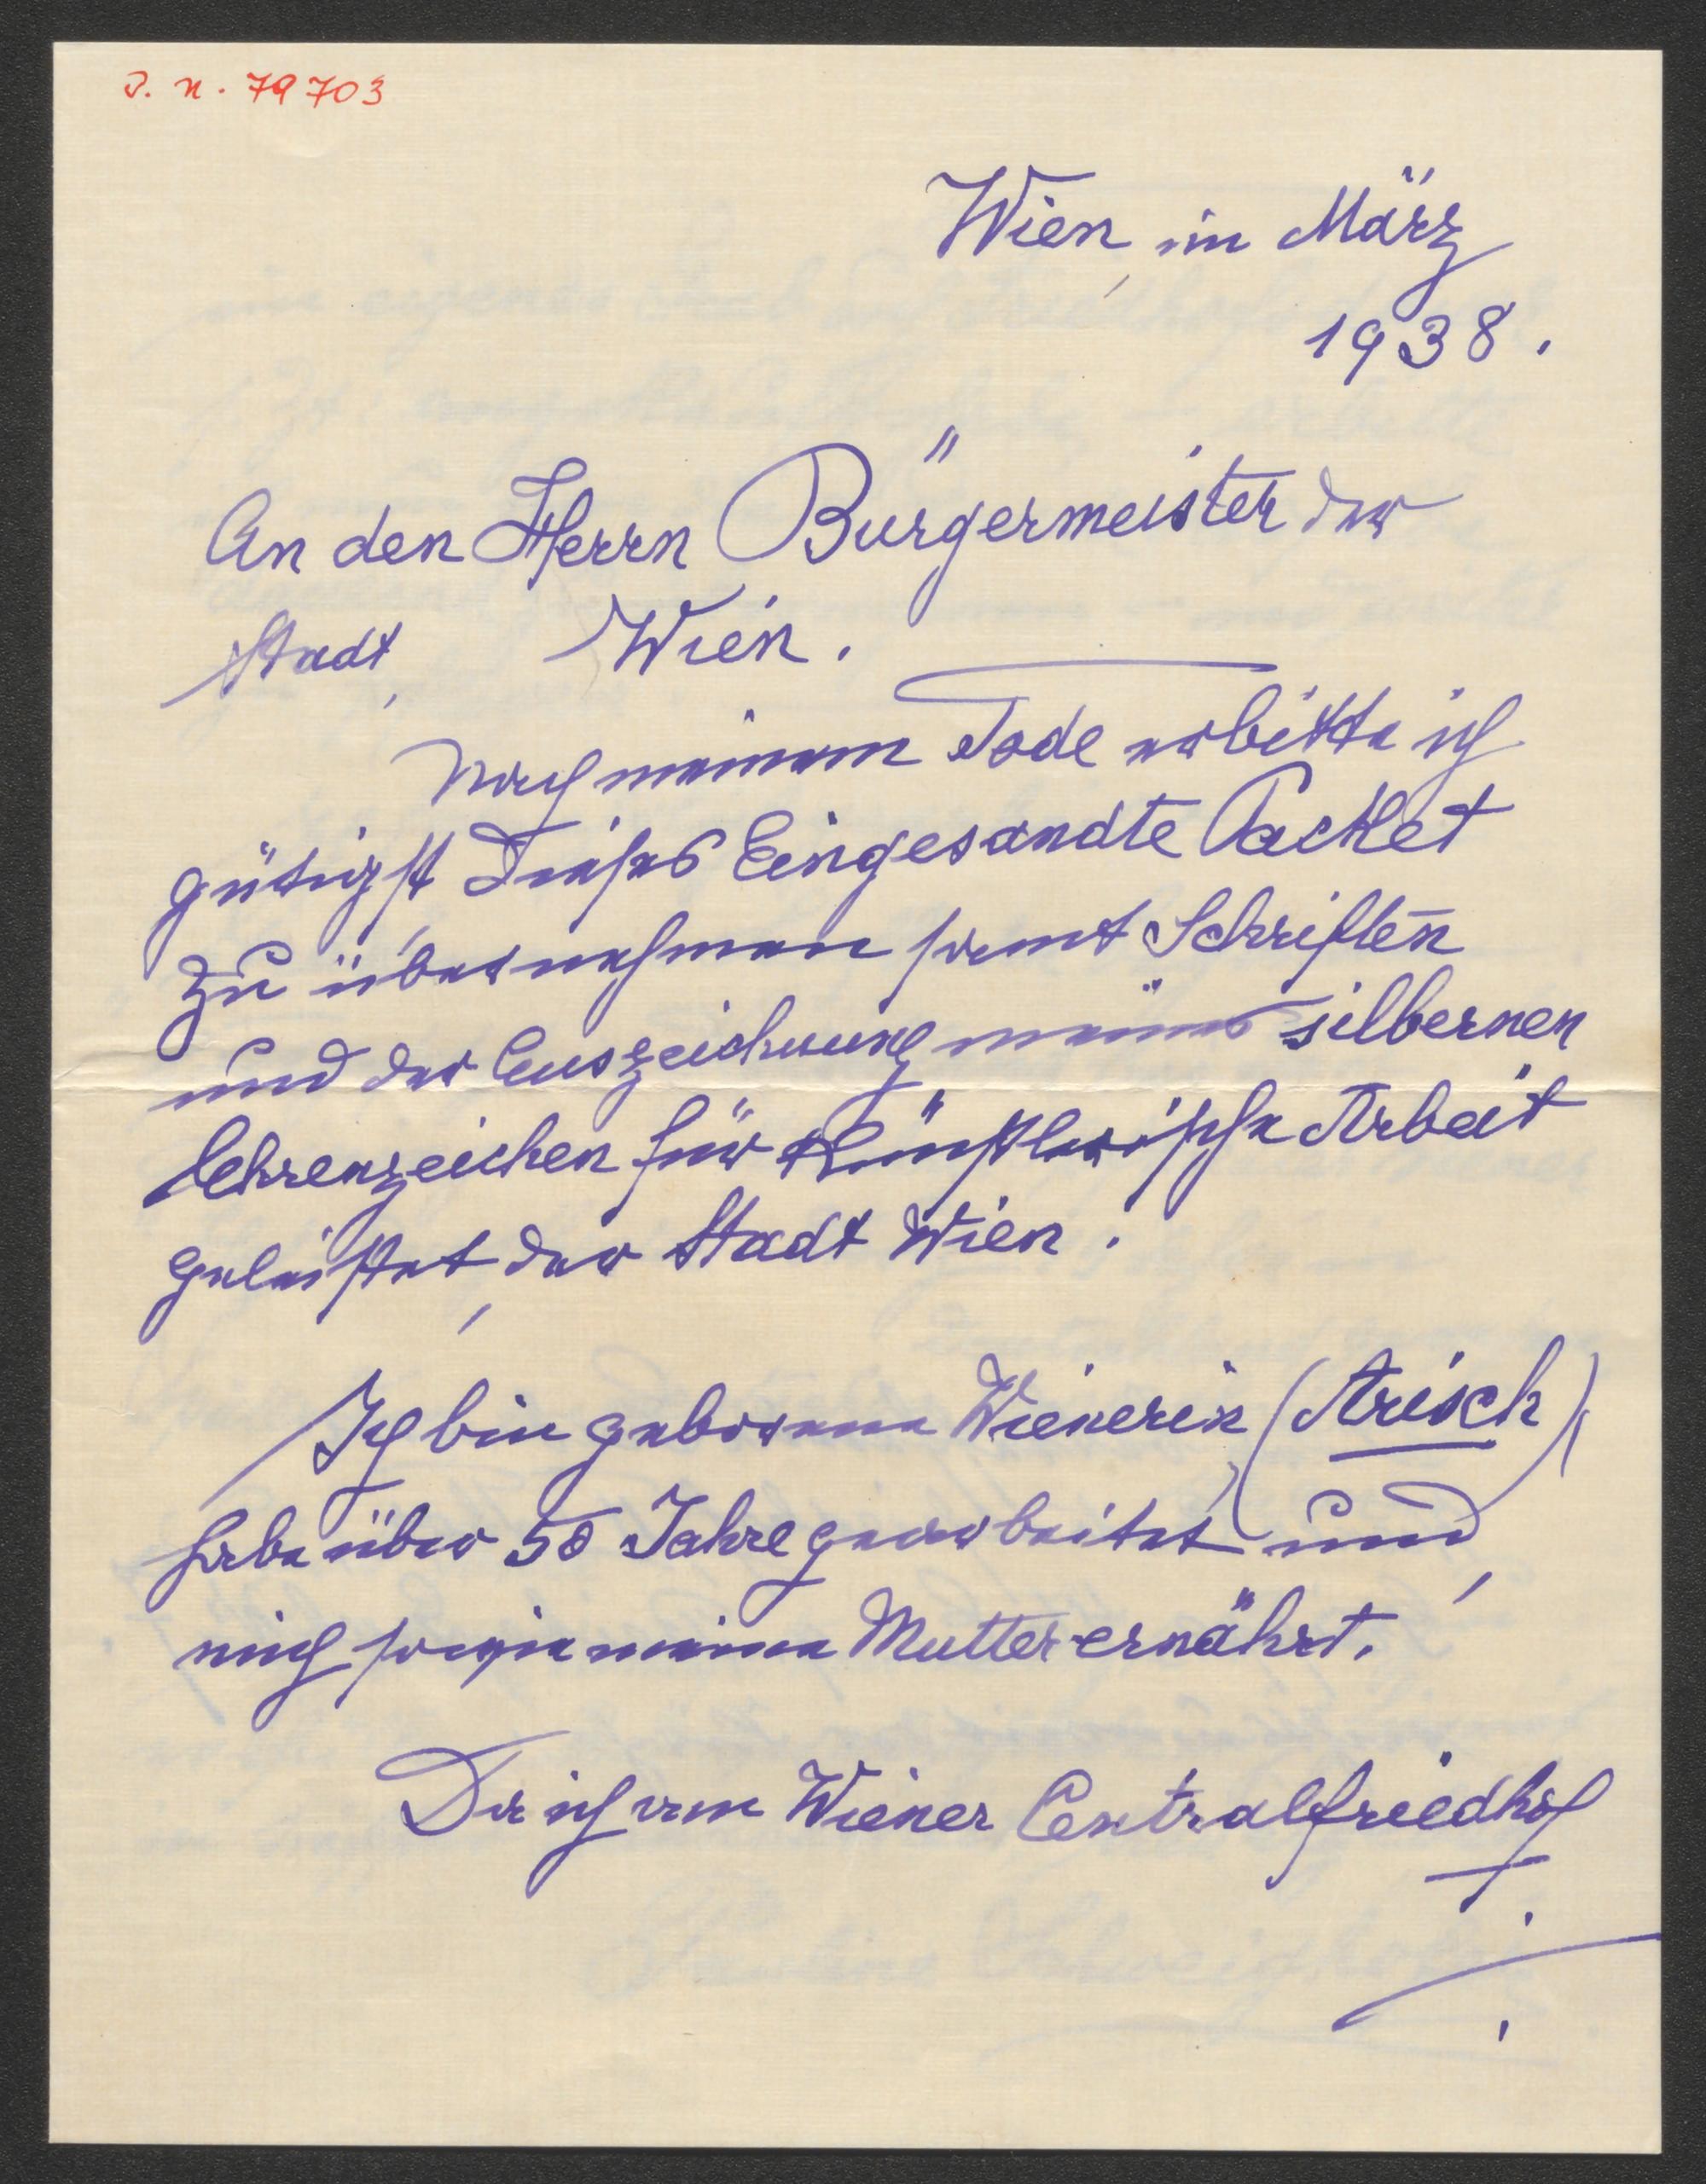 J. N. 79703
Wien, im März
1938.
An den Herrn Bürgermeister der
Stadt, Wien.
Nach meinem Tode erbitte ich
gütigst Dieses Eingesandte Packet
zu übernehmen samt Schriften
und der Auszeichnung meines silbernen
Ehrenzeichen für Künstlerische Arbeit
geleistet, der Stadt Wien.
Ich bin geborene Wienerin (Arisch)
habe über 50 Jahre gearbeitet und,
mich sowie meine Mutter ernährt.
Da ich am Wiener Centralfriedhof